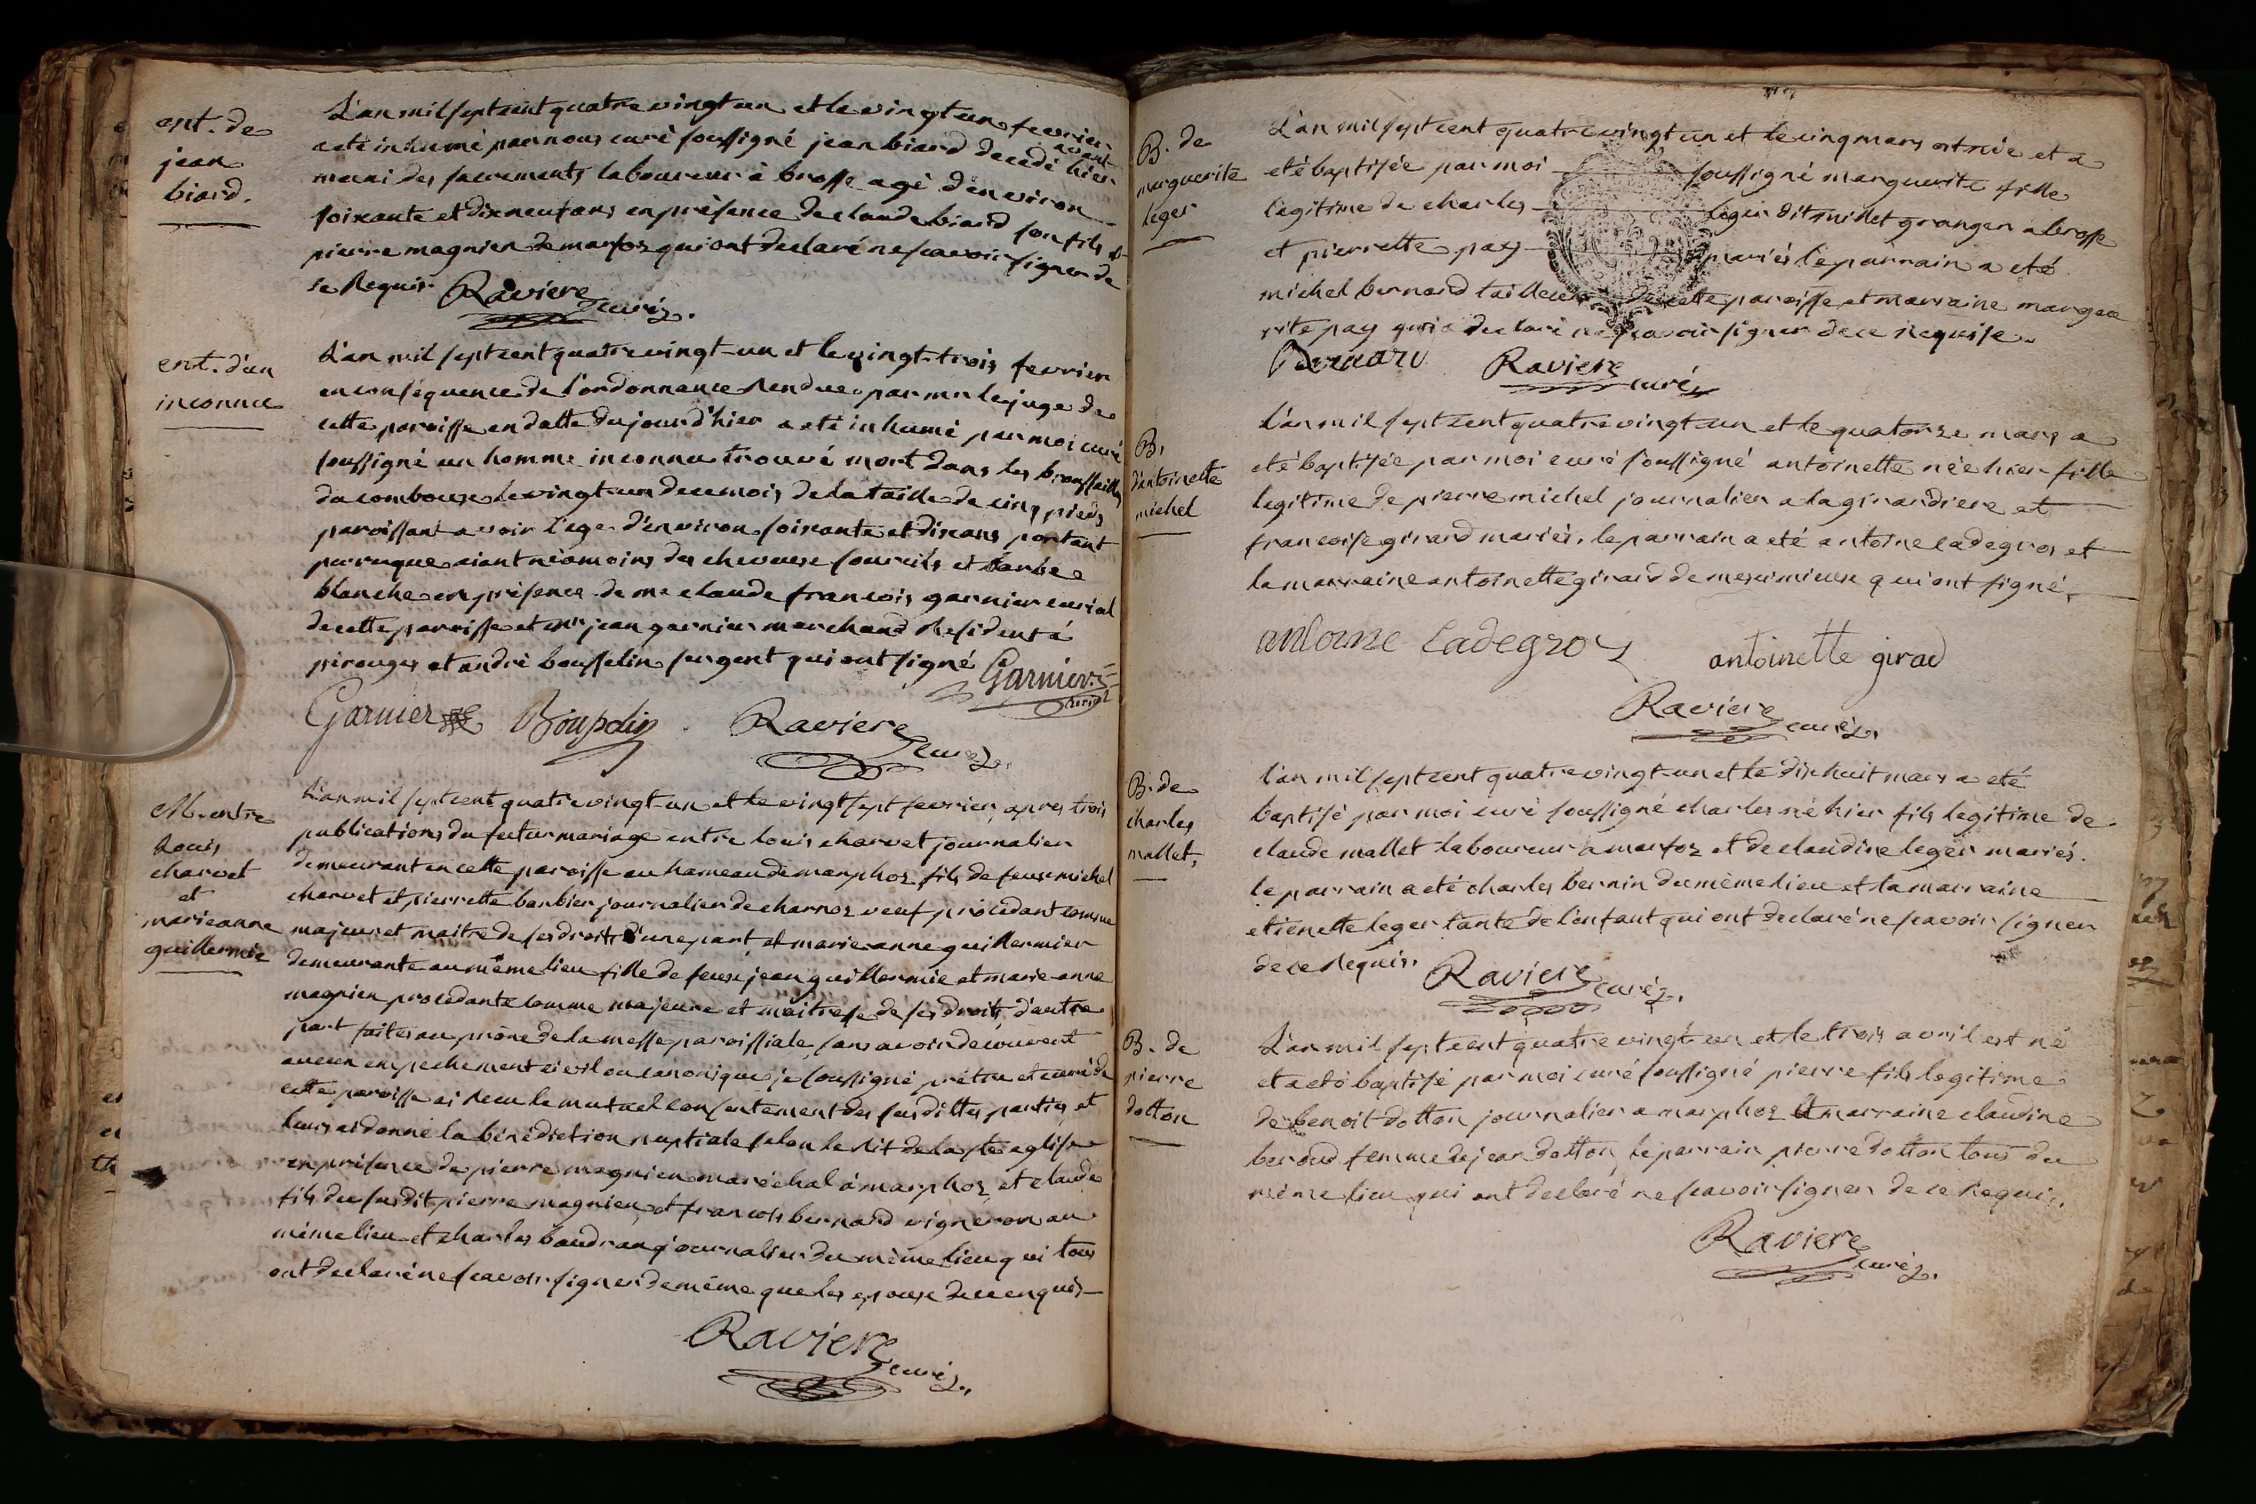 ent. de
jean
biard.
L'an mil sept cent quatre vingt un et le vingt un fevrier
a eté inhumé par nous curé soussigné jean biard decedé hier
muni des sacrements laboureur à brosse agé d'environ
soixante et dix neuf ans en présence de claude biard son fils et
pierre magnien de marfoz qui ont declaré ne scavoir signer de
ce Requis. Raviere curé.
ent. d'un
inconnu
L'an mil sept cent quatre vingt-un et le vingt-trois fevrier
en conséquence de l'ordonnance Rendue par mr le juge de
cette paroisse en datte du jourd'hier a eté inhumé par moi curé
soussigné un homme inconnu trouvé mort dans les broussailles
du vingt-un de ce mois de la taille de cinq pieds
paroissant avoir l'age d'environ soixante et dix ans portant
perruque aiant néamoins des cheveux sourcils et barbe
blanche en présence de me claude francois garnier curial
de cette paroisse et mr jean garnier marchand Residents à
perouges et andré bousselin sergent qui ont signé Garnier
Garnier Raviere curé.
M. entre
Louis
charvet
et
marie anne
guillermie
L'an mil sept cent quatre vingt-un et le vingt sept fevrier, apres trois
publications du futur mariage entre louis charvet journalier
demeurant en cette paroisse au hameau de marphoz fils de feux michel
charvet et pierrette barbier journalier de charnoz veuf procedant comme
majeur et maitre de ses droits d'une part, et marie anne guillermier
demeurante au même lieu fille de feux jean guillermie et marie-anne
magnien procedante comme majeure et maitresse de ses droits, d'autre
part faites au prône de la messe paroissiale, sans avoir decouvert
aucun empechement civil ou canonique, je soussigné prêtre et curé de
cette paroisse ai Recu le mutuel consentement des susdittes parties, et
leurs ai donné la bénédiction nuptiale selon le Rit de la ste eglise
en présence de pierre magnien maréchal à marphoz, et claude
fils du susdit pierre magnien, et francois bernard vigneron au
même lieu et charles baudrand journalier du même lieu qui tous
ont declaré ne scavoir signer de même que les epoux de ce enquis
Raviere curé.
B. de
marguerite
leger
L'an mil sept cent quatre vingt un et le cinq mars est née et a
eté baptisée par moi soussigné marguerite fille
legitime de charles leger dit millet granger a brosse
et pierrette pay mariés le parrain a eté
michel bernard tailleur de cette paroisse et marraine margue
rite pay qui a declaré ne scavoir signer de ce Requise.
Bernard Raviere curé
B.
d'antoinette
michel
L'an mil sept cent quatre vingt-un et le quatorze mars a
eté baptisée par moi curé soussigné antoinette née hier fille
legitime de pierre michel journalier a la girardiere et
francoise girard mariés. le parrain a eté antoine cadegros et
la marraine antoinette girard de meximieux qui ont signé.
antoine Cadegros antoinette girad
Raviere curé.
B. de
charles
mallet,
L'an mil sept cent quatre vingt-un et le dix huit mars a eté
baptisé par moi curé soussigné charles né hier fils legitime de
claude mallet laboureur a marfoz et de claudine leger mariés.
le parrain a eté charles bernin du même lieu et la marraine
etienette leger tante de l'enfant qui ont declaré ne scavoir signer
de ce Requis. Raviere curé.
B. de
pierre
dotton
L'an mil sept cent quatre vingt-un et le trois avril est né
et a eté baptisé par moi curé soussigné pierre fils legitime
de benoit dotton journalier a marphoz et marraine claudine
beroud femme de jean dotton, le parrain pierre dotton tous du
même lieu qui ont declaré ne scavoir signer de ce Requis.
Raviere curé.